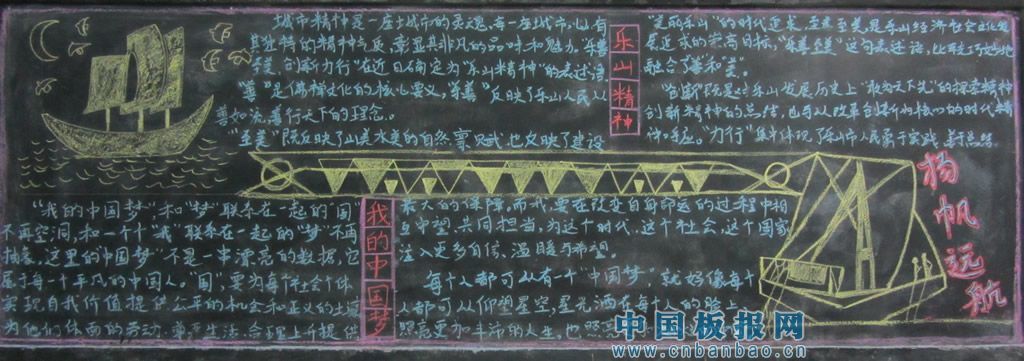 城市精神是一座城市的灵魂,每一座城市,必有
其独特的精神气质,彰显其非凡的品味和魅力。"乐善
至美,创新力行"在近日确定为"乐山精神"的表述语
"善"是佛禅文化的核心要义,"乐善"反映了乐山人民从
善如流,善行天下的理念。
"至美"既反映了山美水美的自然禀赋,也反映了建设
乐山精神
"美丽乐山"的时代追求,至善至美是乐山经济社会的发
展追求的崇高目标,"乐善至美"这句表述语,比较巧妙地
融合了"善和美"。
"创新"既是对乐山发展历史上"敢为天下先"的探索精神
创新精神的总结,也可以改革创新为核心的时代精
神呼应。"力行"集中体现了乐山市人民勇于实践,善于总结
"我的中国梦",和"梦"联系在一起的"国"
不再空洞,和一个个"我"联系在一起的"梦"不再
抽象,这里的中国梦,不是一串漂亮的数据,它
属于每个平凡的中国人。"国",要为每个社会个体
实现自我价值提供公平的机会和正义的土壤
为他们体面的劳动、尊严生活、合理上升提供
我的中国梦
最大的保障,而"我",要在改变自身命运的过程中相
互守望,共同担当,为这个时代,这个社会,这个国家
注入更多自信、温暖与希望。
每个人都可以有一个"中国梦",就好像每个
人都可以仰望星空,星光洒在每个人的脸上,
照亮更加丰沛的人生,也照亮
杨帆远航
中国板报网
www.cnbanbao.cn